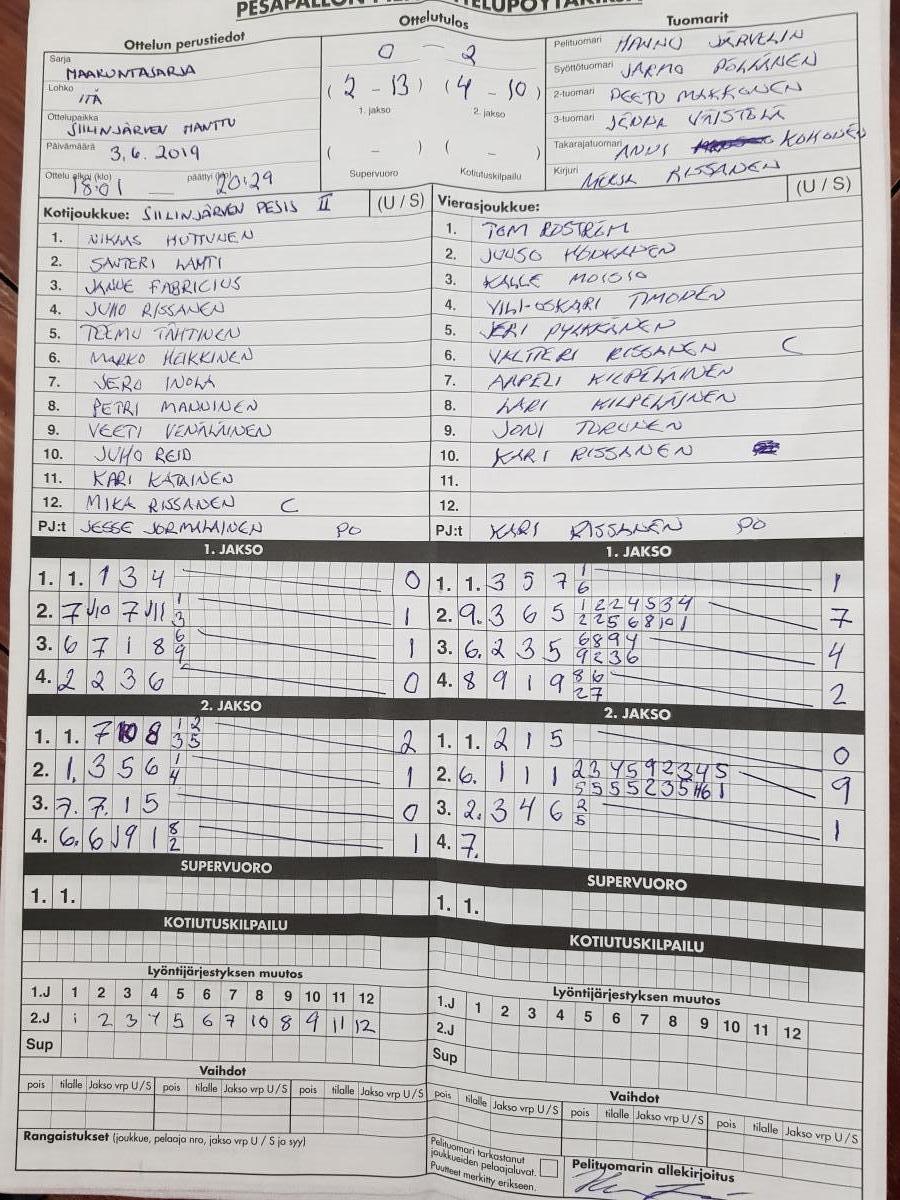 Ottelun perustiedot
Sarja
MAAKUNTASARJA
Lohko
ITÄ
Ottelupaikka
SIILINJÄRVEN MANTTU
Päivämäärä 3.6.2019
Ottelu alkoi (klo) 18:01 päättyi (klo) 20:29
Ottelutulos
0 - 2
(2 - 13) (4 - 10)
1. jakso 2. jakso
( - ) ( - )
Supervuoro Kotiutuskilpailu
Tuomarit
Pelituomari HANNU JÄRVELIN
Syöttötuomari JARMO PÖLKÄNEN
2-tuomari PEETU MAKKONEN
3-tuomari JENNA VÄISTÖLÄ
Takarajatuomari ANNI KOKONEN
Kirjuri MERJA RISSANEN
Kotijoukkue: SIILINJÄRVEN PESIS II (U / S)
1. NIKLAS HUTTUNEN
2. SANTERI LAHTI
3. JANNE FABRICIUS
4. JUHO RISSANEN
5. TEEMU TÄHTINEN
6. MARKO HEIKKINEN
7. JERO INOLA
8. PETRI MANNINEN
9. VEETI VENÄLÄINEN
10. JUHO REID
11. KARI KATAINEN
12. MIKA RISSANEN C
PJ:t JESSE JORMALAINEN PO
Vierasjoukkue: (U / S)
1. TOM ROSTRÖM
2. JUUSO HONKANEN
3. KALLE MOISIO
4. VILI-OSKARI TIMONEN
5. JERI PYLKKÄNEN
6. VALTTERI RISSANEN C
7. AAPELI KILPELÄINEN
8. LARI KILPELÄINEN
9. JONI TURUNEN
10. KARI RISSANEN
11.
12.
PJ:t KARI RISSANEN PO
1. JAKSO
1. 1. 1 3 4 0
2. 7 J10 7 J11 1 3 1
3. 6 7 1 8 6 9 1
4. 2 2 3 6 0
2. JAKSO
1. 1. 7 8 1 2 3 5 2
2. 1. 3 5 6 1 4 1
3. 7. 7. 1 5 0
4. 6. 6 J9 1 8 2 1
SUPERVUORO
1. 1.
KOTIUTUSKILPAILU
1. JAKSO
1. 1. 3 5 7 1 6 1
2. 9. 3 6 5 1 2 2 4 5 3 4 7
2 2 5 6 8 10 1
3. 6. 2 3 5 6 8 9 4 4
9 2 3 6
4. 8 9 1 9 8 6 2
2 7
2. JAKSO
1. 1. 2 1 5 0
2. 6. 1 1 1 2 3 4 5 9 2 3 4 5 9
5 5 5 5 2 3 5 6 1
3. 2. 3 4 6 2 5 1
4. 7.
SUPERVUORO
1. 1.
KOTIUTUSKILPAILU
Lyöntijärjestyksen muutos
1.J 1 2 3 4 5 6 7 8 9 10 11 12
2.J 1 2 3 4 5 6 7 10 8 9 11 12
Sup
Vaihdot
pois tilalle Jakso vrp U/S pois tilalle Jakso vrp U/S pois tilalle Jakso vrp U/S
Rangaistukset (joukkue, pelaaja nro, jakso vrp U / S ja syy)
Lyöntijärjestyksen muutos
1.J 1 2 3 4 5 6 7 8 9 10 11 12
2.J
Sup
Vaihdot
pois tilalle Jakso vrp U/S pois tilalle Jakso vrp U/S pois tilalle Jakso vrp U/S
Pelituomari tarkastanut
joukkueiden pelaajaluvat.
Puutteet merkitty erikseen.
Pelituomarin allekirjoitus